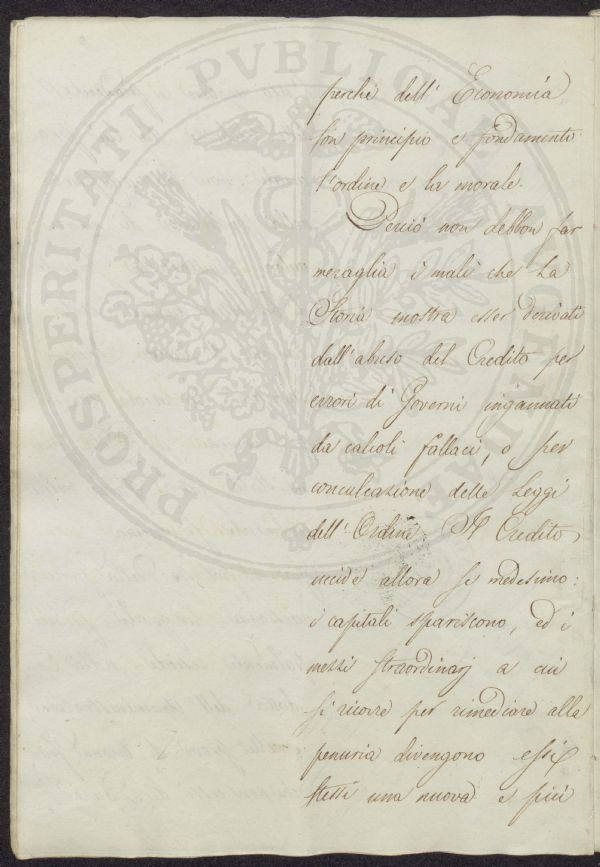 perchè dell' Economia
son principio e fondamento
l'ordine e la morale.
Perciò non debbon far
meraglia i mali che La
Storia mostra esser derivati
dall'abuso del Credito per
errori di Governi ingannati
da calcoli fallaci, o per
conculcazione delle Leggi
dell'Ordine. Il Credito
uccide allora se medesimo:
i capitali spariscono, ed i
mezzi straordinarj a cui
si ricorre per rimediare alla
penuria divengono essi
stessi una nuova e più
PROSPERITATI PVBLICAE